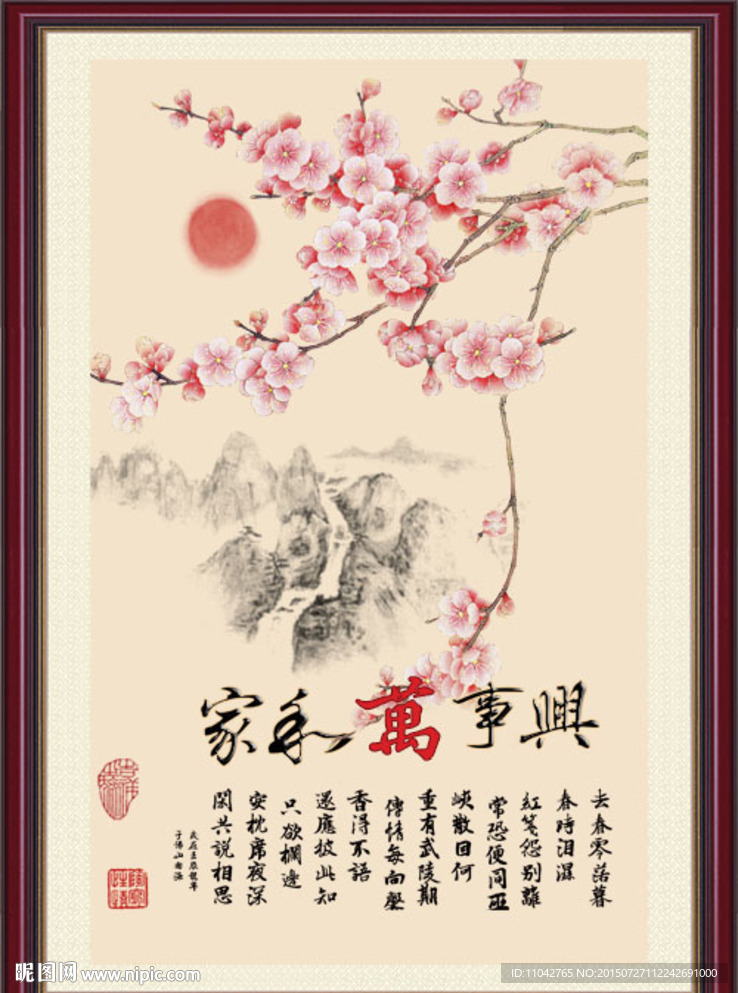 家和萬事興
去春零落暮
春時泪濕
紅箋怨別離
常恐便同巫
峽散因何
重有武陵期
傳情每向馨
香得不語
還應彼此知
只欲欄邊
安枕席夜深
閑共說相思
昵图网 www.nipic.com
ID:11042765 NO:20150727112242691000